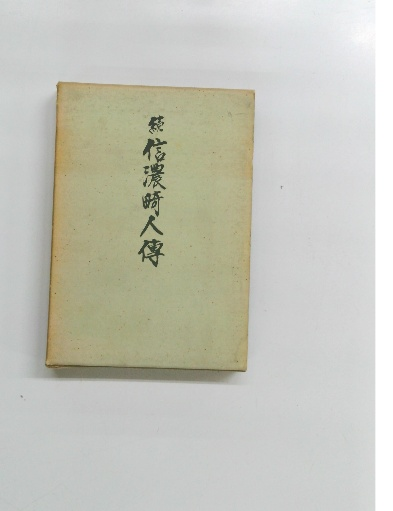 續信濃畸人傳